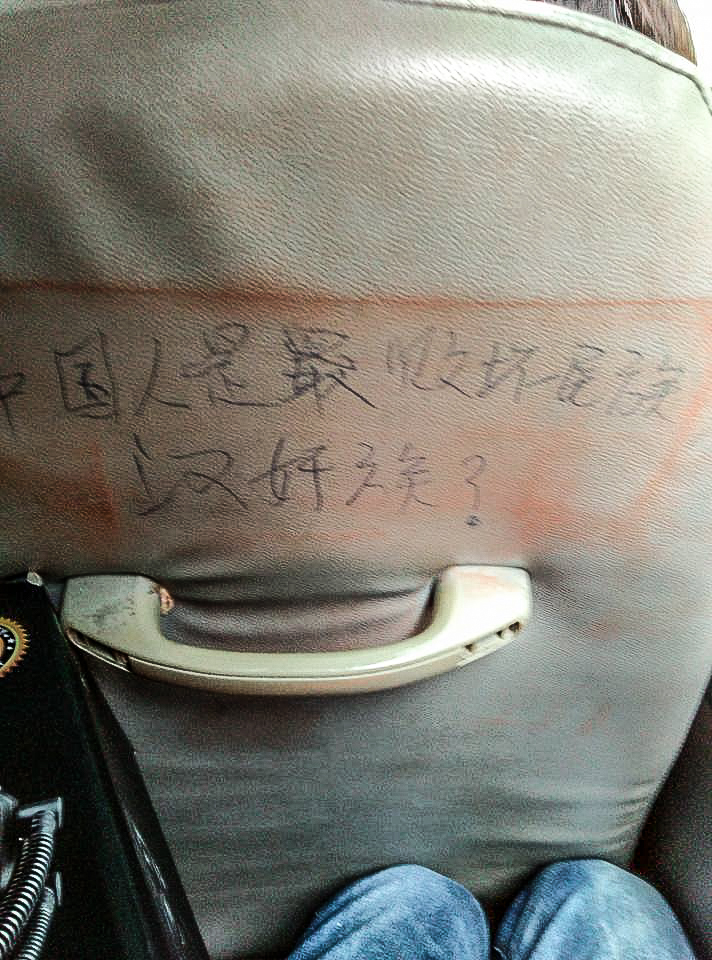 中国人是最败坏民族
汉奸族？